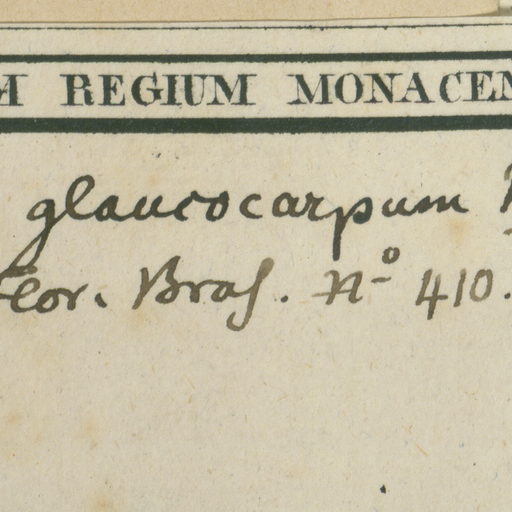 M REGIUM MONACEN
glaucocarpum
Flor. Bras. Nº 410.